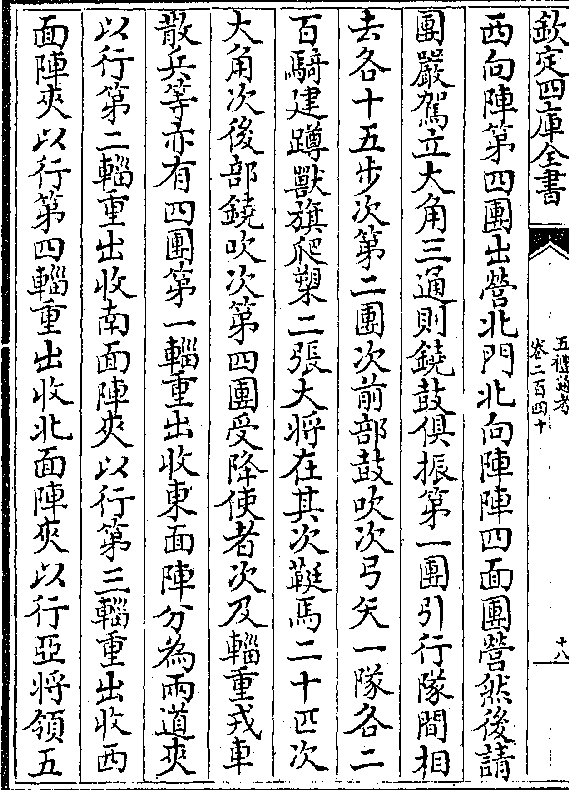 欽定四庫全書
五禮通考
卷二百四十
十八
西向陣第四團出營北門北向陣陣四面團營然後請
團嚴駕立大角三通則鐃鼓俱振第一團引行隊間相
去各十五步次第二團次前部鼓吹次弓矢一隊各二
百騎建蹲獸旗爬槊二張大将在其次鞁馬二十匹次
大角次後部鐃吹次第四團受降使者次及輜重戎車
散兵等亦有四團第一輜重出收東面陣分為兩道夾
以行第二輜重出收南面陣夾以行第三輜重出收西
面陣夾以行第四輜重出收北面陣夾以行亞将領五